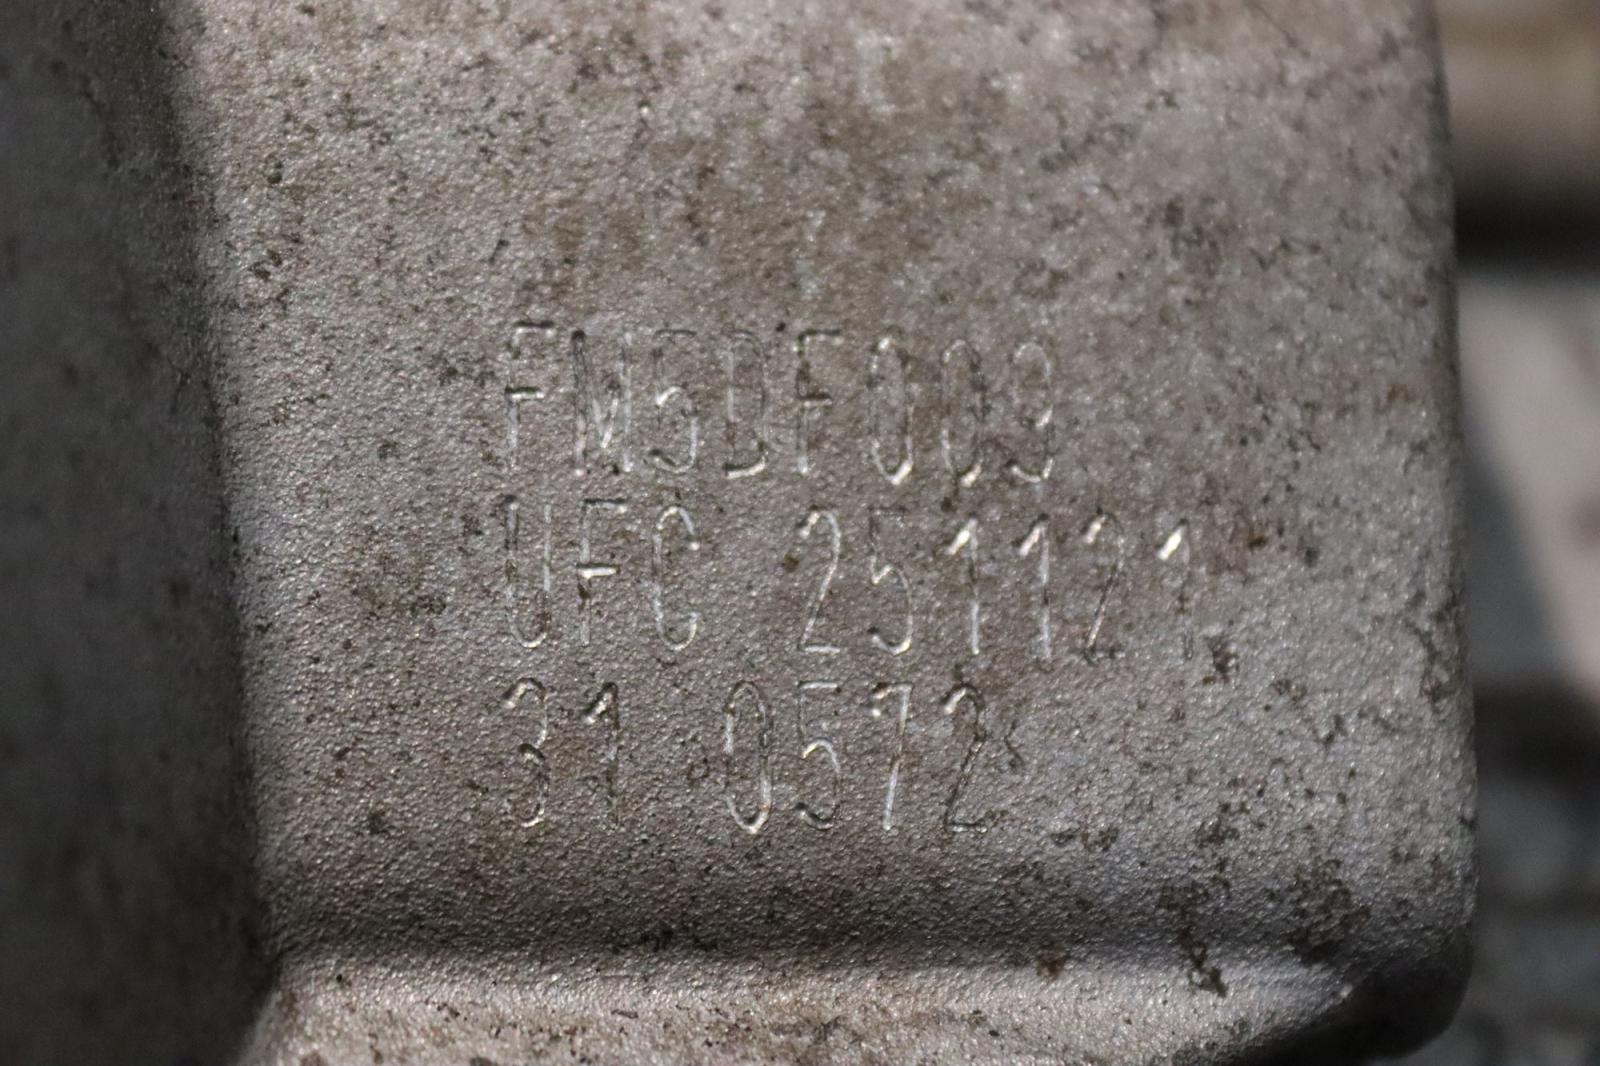 FM5DF009
UFC 251121
31 0572